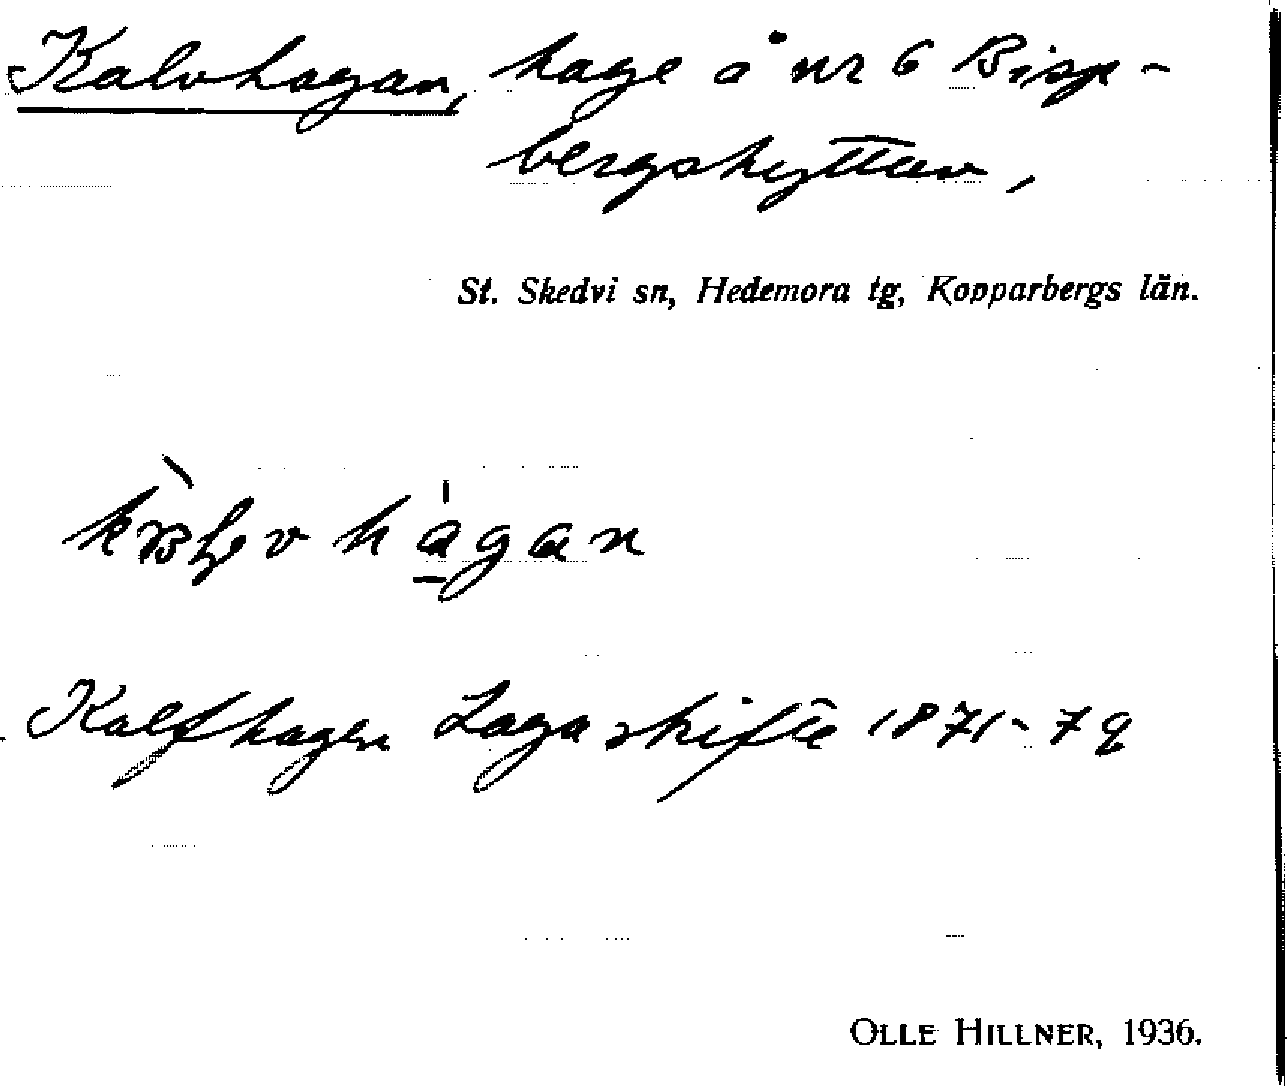 Kalvhagan, hage å nr 6 Bisp-
bergshyttan,
St. Skedvi sn, Hedemora tg, Kopparbergs län.
Kalfhagen Laga skifte 1871-79
OLLE HILLNER, 1936.